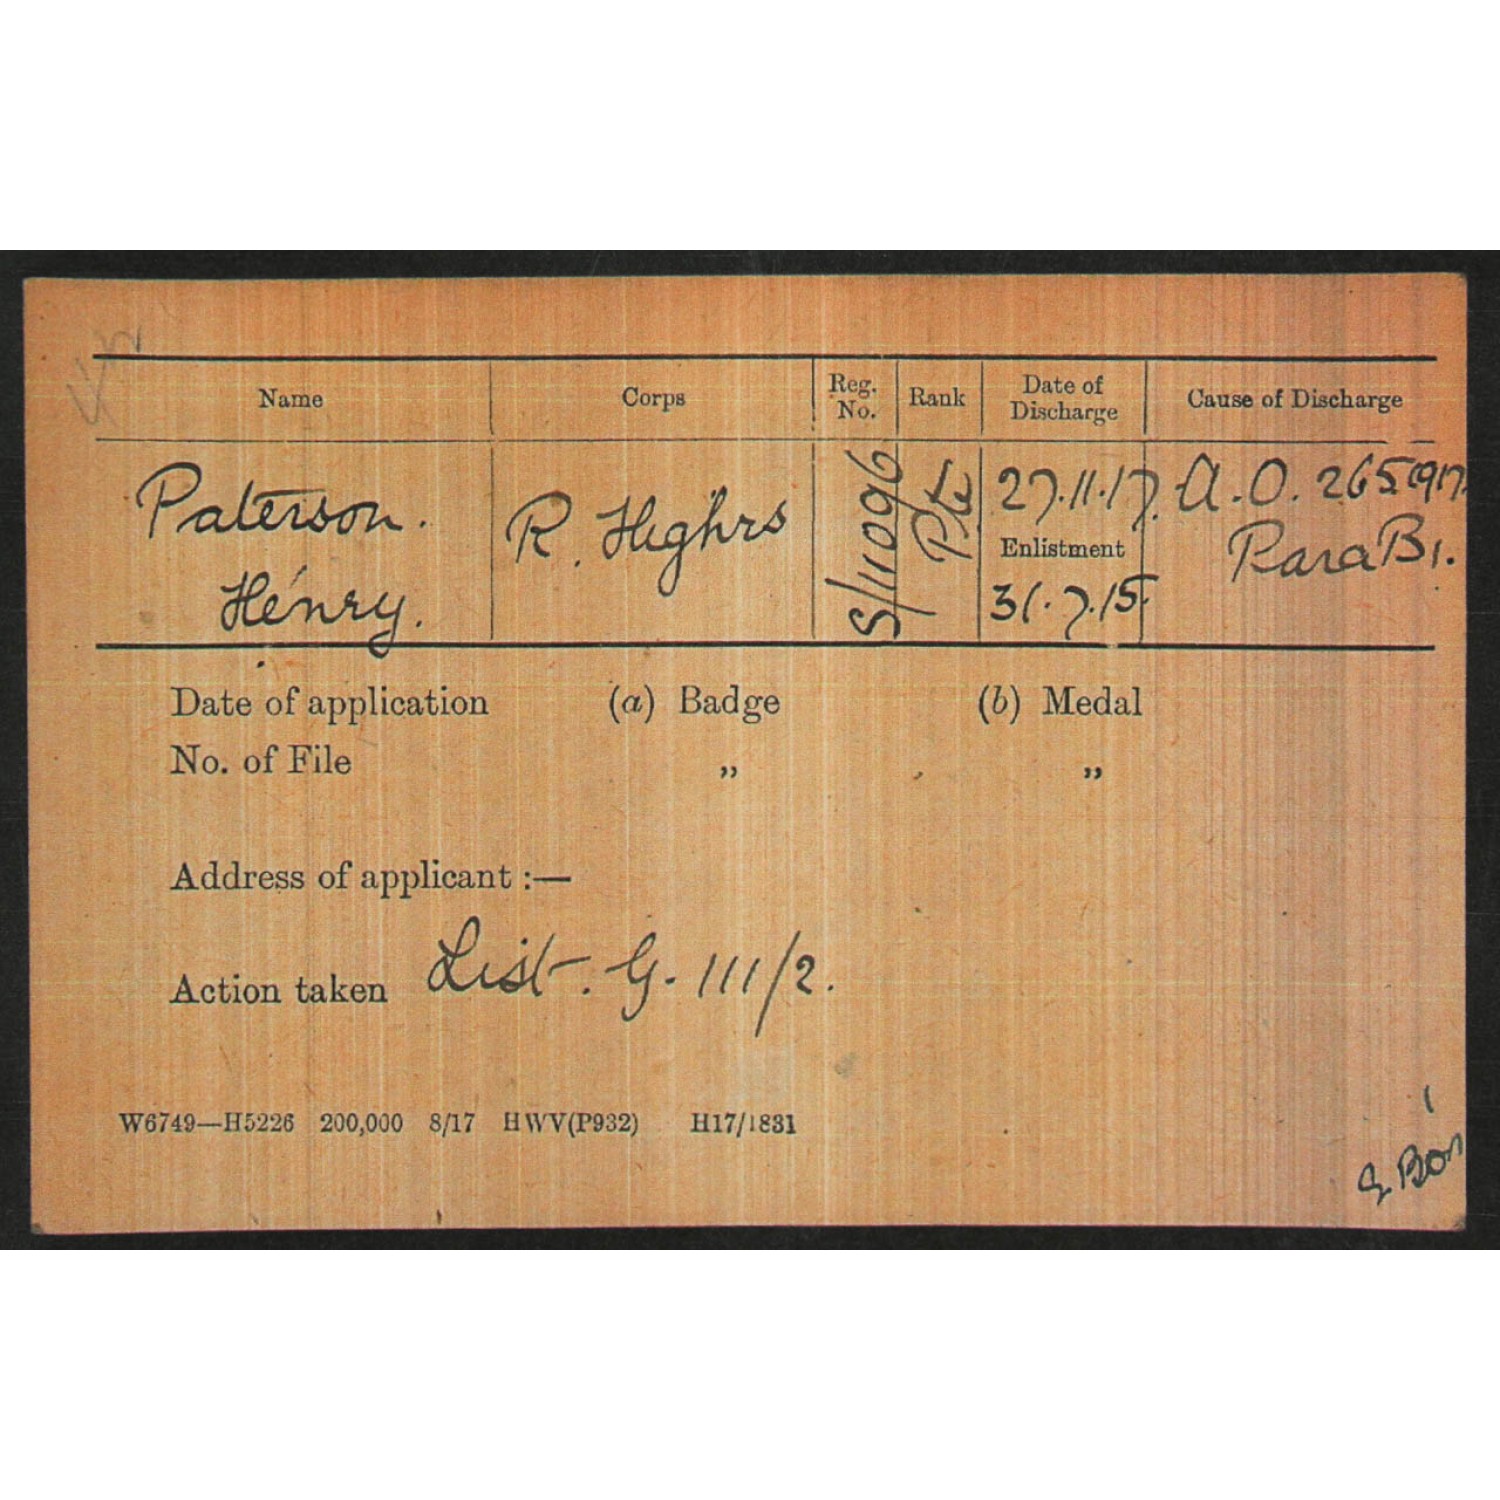 Name Corps Reg. No. Rank Date of Discharge Cause of Discharge
Paterson. R. Highrs S/11096 Pte 27.11.17. A.O. 265/1917.
Enlistment Para B i.
Henry. 31.7.15.
Date of application (a) Badge (b) Medal
No. of File „ „
Address of applicant :—
Action taken List. G. 111/2.
W6749—H5226 200,000 8/17 HWV(P932) H17/1831